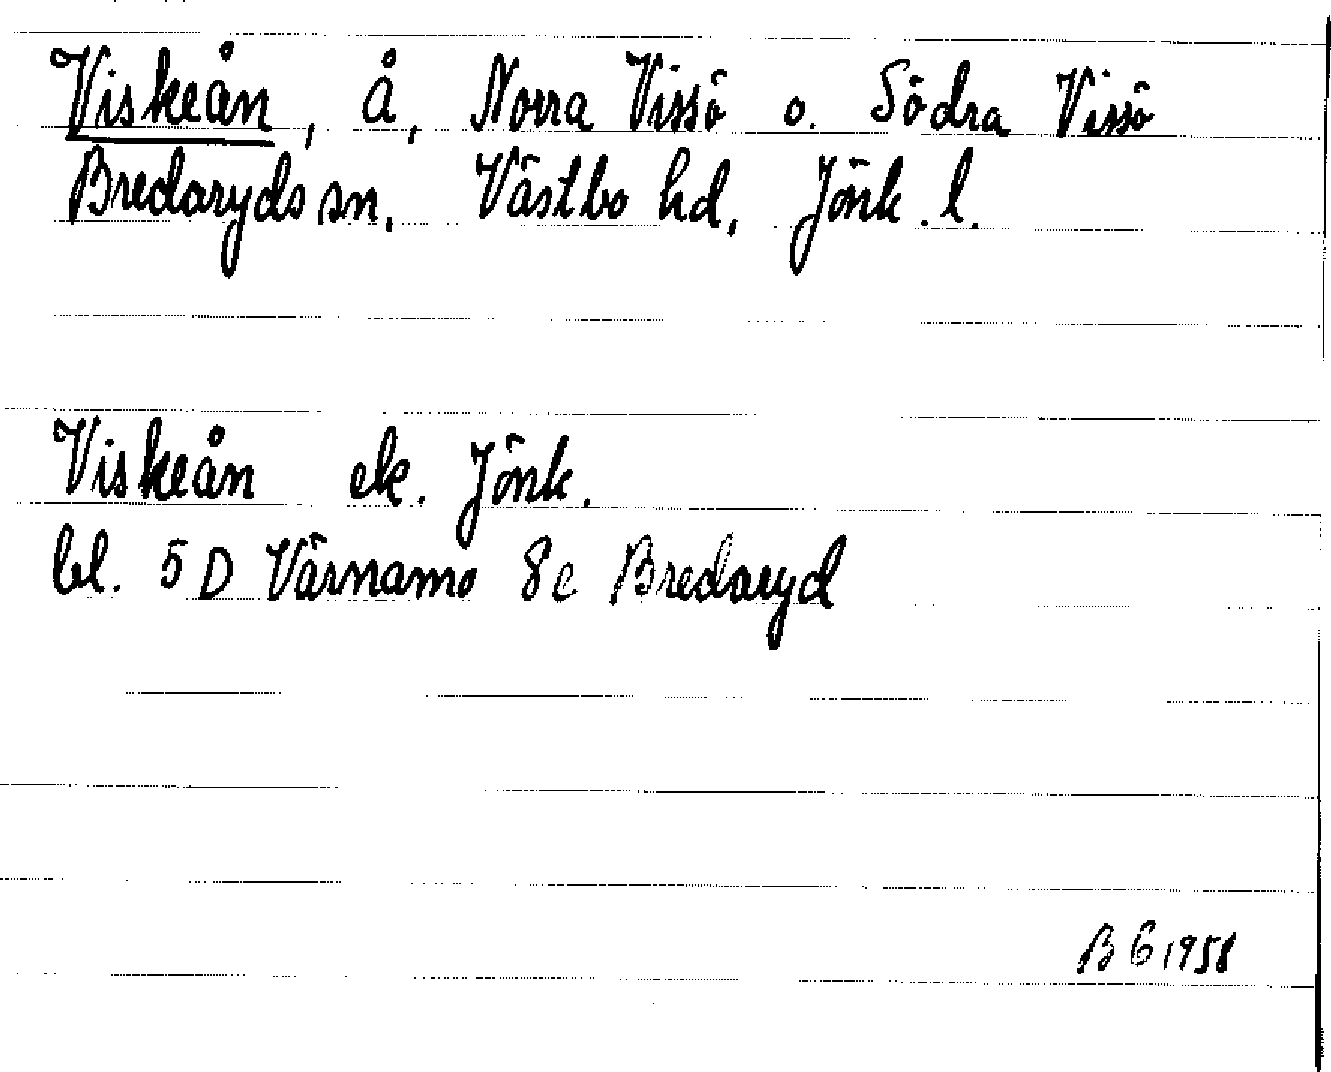 Viskeån, å, Norra Vissö o. Södra Vissö
Bredaryds sn, Västbo hd, Jönk. l.
Viskeån ek. Jönk.
bl. 5 D Värnamo 8c Bredaryd
B G 1958